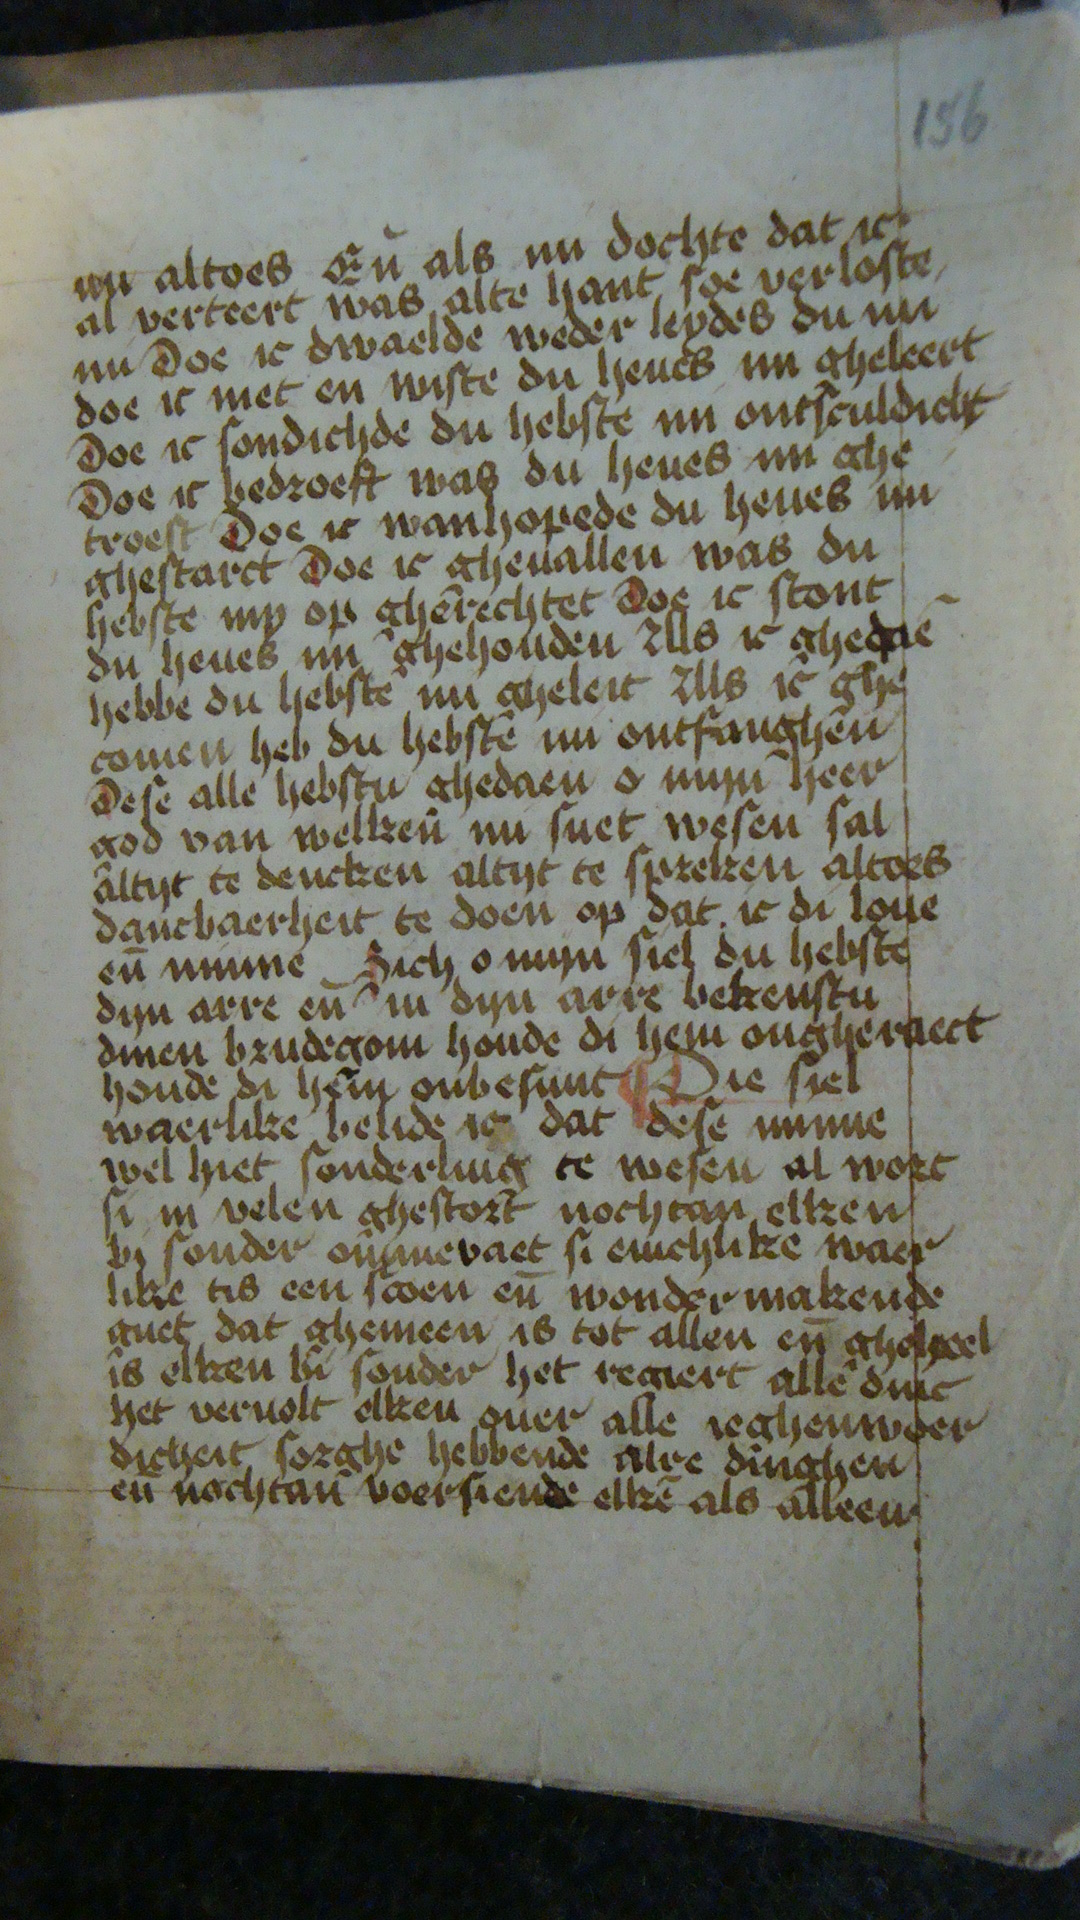 156
mi altoes Eñ als mi dochte dat ic
al verteert was alte hant soe verloste
mi Doe ic dwaelde weder leydes du mi
doe ic niet en wiste du heues mi gheleert
Doe ic sondichde du hebste mi ontsculdicht
Doe ic bedroeft was du heues mi ghe
troest Doe ic wanhopede du heues mi
ghestarct Doe ic gheuallen was du
hebste my op gherechtet Doe ic stont
du heues mi ghehouden Als ic ghegaē
hebbe du hebste mi gheleit Als ic ghe
comen heb du hebste mi ontfanghen
Dese alle hebstu ghedaen o mijn heer
god van welken mi suet wesen sal
altijt te dencken altijt te spreken altoes
dancbaerheit te doen op dat ic di loue
eñ minne Sich o mijn siel du hebste
dijn arre eñ in dijn arre bekenstu
dinen brudegom houde di hem ongheraect
houde di hem onbesmit Die siel
waerlike belide ic dat dese minne
wel hiet sonderling te wesen al wort
si in velen ghestort nochtan elken
bi sonder si enichlike waer
like tis een scoen eñ wonder makende
guet dat ghemeen is tot allen eñ gheheel
is elken bi sonder het regiert alle dinc
het veruolt elken ouer alle ieghenwoer
dicheit sorghe hebbende alre dinghen
eñ nochtan voersiende elkē als alleen